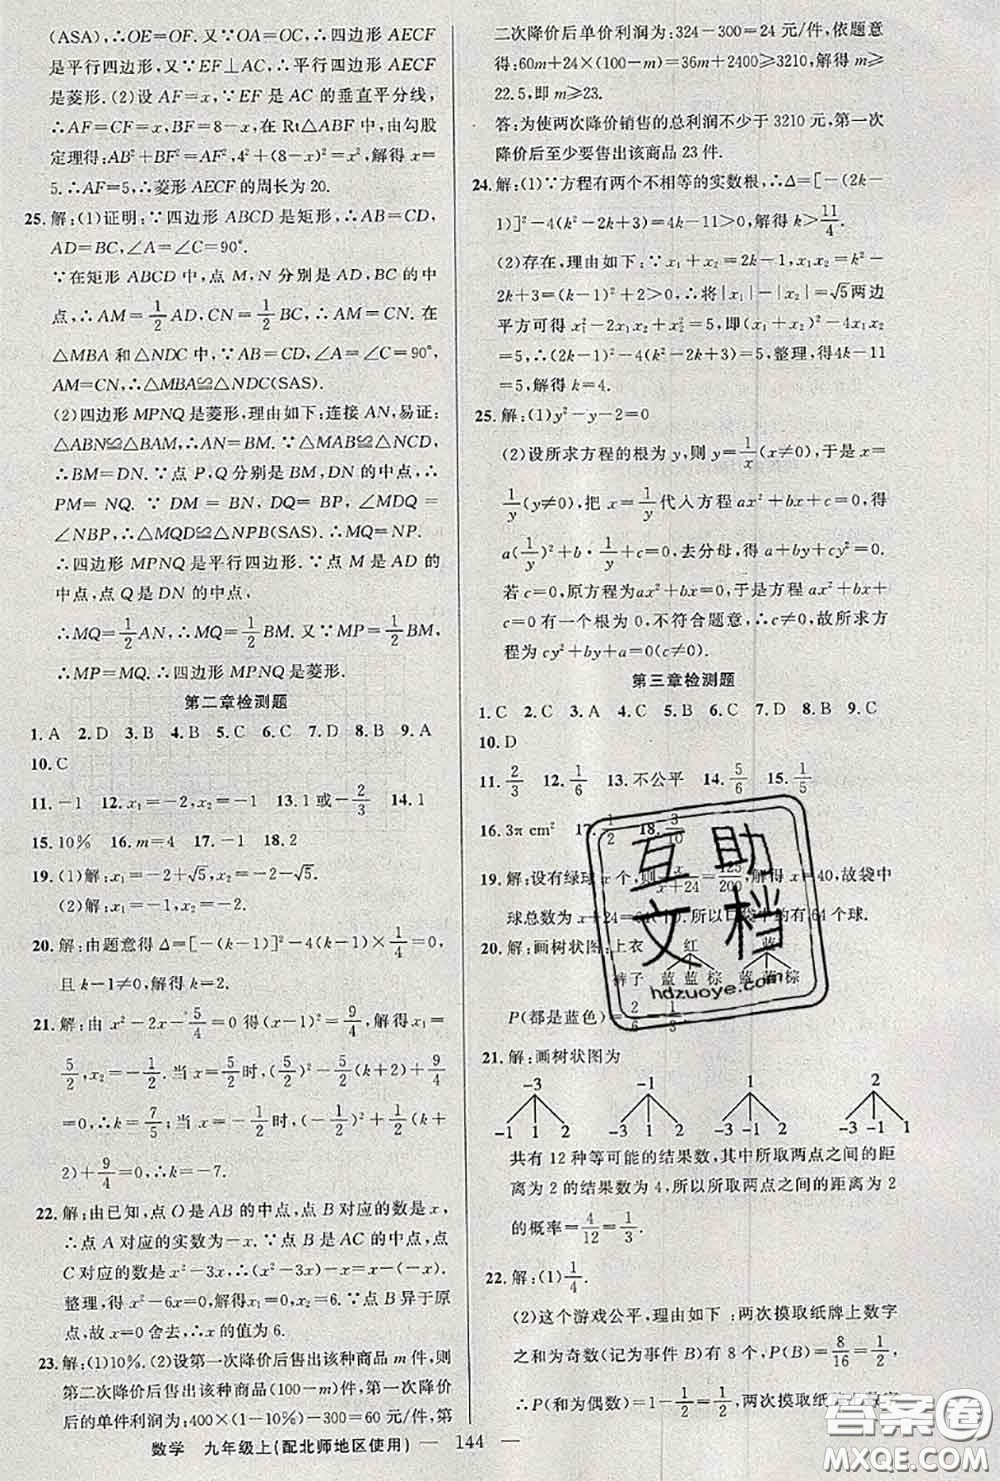 (ASA),∴OE=OF.又∵OA=OC,∴四边形 AECF
是平行四边形,又∵EF⊥AC,∴平行四边形 AECF
是菱形.(2)设 AF=x,∵EF 是 AC 的垂直平分线,
∴AF=CF=x,BF=8-x,在 Rt△ABF 中,由勾股
定理得:AB²+BF²=AF²,4²+(8-x)²=x²,解得 x=
5.∴AF=5,∴菱形 AECF 的周长为 20.
25.解:(1)证明:∵四边形 ABCD 是矩形,∴AB=CD,
AD=BC,∠A=∠C=90°.
∵在矩形 ABCD 中,点 M,N 分别是 AD,BC 的中
点,∴AM=1/2 AD,CN=1/2 BC,∴AM=CN. 在
△MBA 和△NDC 中,∵AB=CD,∠A=∠C=90°,
AM=CN,∴△MBA≌△NDC(SAS).
(2)四边形 MPNQ 是菱形,理由如下:连接 AN,易证:
△ABN≌△BAM,∴AN=BM.∵△MAB≌△NDC,
∴BM=DN.∵点 P,Q 分别是 BM,DN 的中点,∴
PM=NQ. ∵ DM = BN, DQ = BP, ∠MDQ =
∠NBP,∴△MQD≌△NPB(SAS).∴MQ=NP.
∴四边形 MPNQ 是平行四边形.∵点 M 是 AD 的
中点,点 Q 是 DN 的中点,
∴MQ=1/2 AN,∴MQ=1/2 BM.又∵MP=1/2 BM,
∴MP=MQ.∴四边形 MPNQ 是菱形.
第二章检测题
1.A 2.D 3.B 4.B 5.C 6.C 7.D 8.B 9.A
10.C
11.-1 12.x₁=-2,x₂=-1 13.1 或-2/3 14.1
15.10% 16.m=4 17.-1 18.2
19.(1)解:x₁=-2+√5,x₂=-2-√5.
(2)解:x₁=-2,x₂=4.
20.解:由题意得 Δ=[-(k-1)]²-4(k-1)×1/4=0,
且 k-1≠0,解得 k=2.
21.解:由 x²-2x-5/4=0 得(x-1)²=9/4,解得 x₁=
5/2,x₂=-1/2.当 x=5/2时,(5/2)²-5/2(k+2)+9/4
=0,∴k=7/5;当 x=-1/2时,(-1/2)²+1/2(k+
2)+9/4=0,∴k=-7.
22.解:由已知,点 O 是 AB 的中点,点 B 对应的数是 x,
∴点 A 对应的实数为-x.∵点 B 是 AC 的中点,点
C 对应的数是 x²-3x,∴(x²-3x)-x=x-(-x).
整理,得 x²-6x=0,解得x₁=0,x₂=6.∵点 B 异于原
点,故 x=0 舍去,∴x 的值为 6.
23.解:(1)10%.(2)设第一次降价后售出该种商品 m 件,则
第二次降价后售出该种商品(100-m)件,第一次降价后
的单件利润为:400×(1-10%)-300=60 元/件,第
二次降价后单价利润为:324-300=24 元/件,依题意
得:60m+24×(100-m)=36m+2400≥3210,解得 m≥
22.5,即 m≥23.
答:为使两次降价销售的总利润不少于 3210 元,第一次
降价后至少要售出该商品 23 件.
24.解:(1)∵方程有两个不相等的实数根,∴Δ=[-(2k-
1)]²-4(k²-2k+3)=4k-11>0,解得 k>11/4.
(2)存在,理由如下:∵x₁+x₂=2k-1,x₁x₂=k²-
2k+3=(k-1)²+2>0,∴将|x₁|-|x₂|=√5两边
平方可得 x₁²-2x₁x₂+x₂²=5,即(x₁+x₂)²-4x₁x₂
=5,∴(2k-1)²-4(k²-2k+3)=5,整理,得4k-11
=5,解得 k=4.
25.解:(1)y²-y-2=0
(2)设所求方程的根为 y,则 y=1/x(x≠0),于是 x=
1/y(y≠0),把 x=1/y代入方程 ax²+bx+c=0,得
a(1/y)²+b·1/y+c=0,去分母,得 a+by+cy²=0.
若 c=0,原方程为 ax²+bx=0,于是方程 ax²+bx+
c=0 有一个根为 0,不符合题意,∴c≠0,故所求方
程为 cy²+by+a=0(c≠0).
第三章检测题
1.C 2.C 3.B 4.C 5.D 6.C 7.D 8.B 9.C
10.D
11.2/3 12.1/6 13.不公平 14.5/6 15.1/5
16.3π cm² 17.1/2 18.3/10
19.解:设有绿球 x 个,则x/(x+24)=125/200,解得 x=40,故袋中
球总数为 x+24=64(个).所以口袋中约有 64 个球.
20.解:画树状图:上衣 红 蓝
裤子 蓝 蓝 棕 蓝 蓝 棕
P(都是蓝色)=2/6=1/3.
21.解:画树状图为
-3 -1 1 2
-1 1 2 -3 1 2 -3 -1 2 -3 -1 1
共有 12 种等可能的结果数,其中所取两点之间的距
离为 2 的结果数为 4,所以所取两点之间的距离为 2
的概率=4/12=1/3.
22.解:(1)1/4.
(2)这个游戏公平,理由如下:两次摸取纸牌上数字
之和为奇数(记为事件 B)有 8 个,P(B)=8/16=1/2,
∴P(和为偶数)=1-1/2=1/2,两次摸取纸牌上数字
数学 九年级上(配北师地区使用) — 144 —
互助文档
hdzuoye.com
答案圈
MXQE.COM